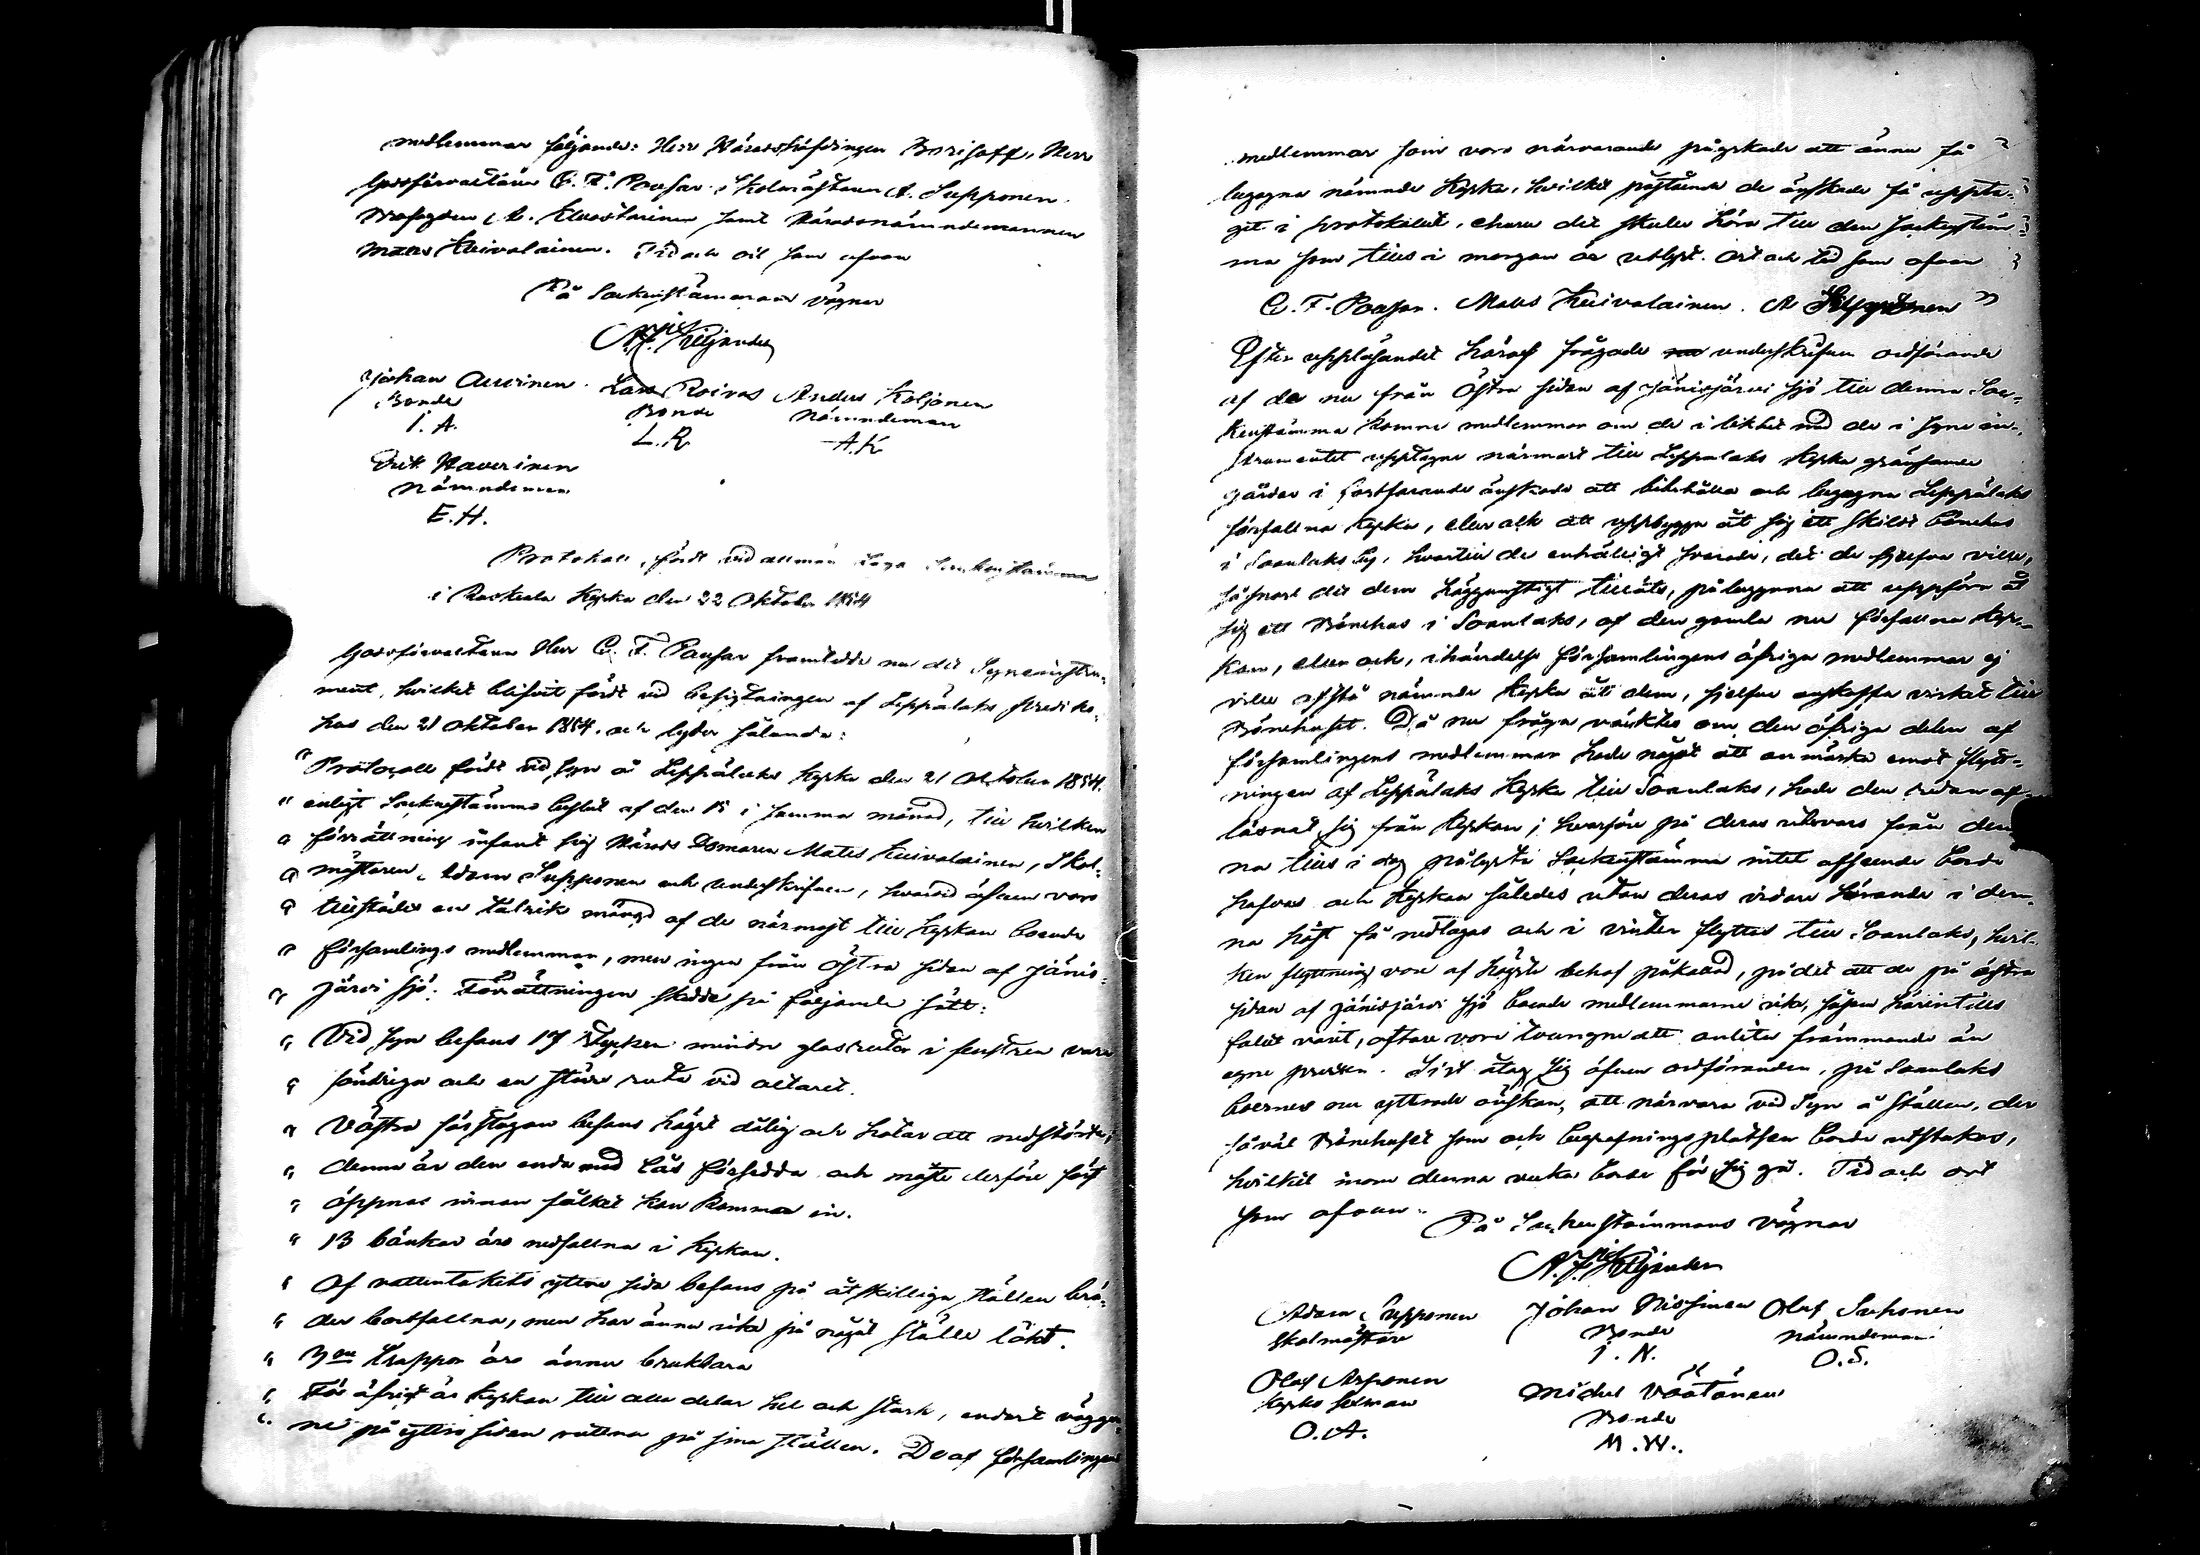 medlemmar följande: Herr Häradshöfdingen Borisoff, Herr
Godsförvaltaren C. F. Pousar, Skolmästaren A. Supponen
Brofogden A. Luostarinen samt Häradsnämndemannen
Matts Kuivalainen. Tid och ort som ofvan
På Sockenstämmans vägnar
Johan Auvinen. Lars Roivas Anders Koljonen
Bonde Bonde Nämndeman
I. A. L. R. A. K
Erik Haverinen
Nämndeman
E. H.
Protokoll, fördt vid allmän laga Sockenstämma
i Ruskeala Kyrka den 22 Oktober 1854
Godsförvaltaren Herr C. F. Pousar framtedde nu det Syneinstru-
ment, hvilket blifvit fördt vid besigtningen af Leppälaks prediko-
hus den 21 Oktober 1854. och lyder sålunda:
"Protocoll fördt vid syn å Leppälaks Kyrka den 21 Oktober 1854.
" enligt Sockenstämmo beslut af den 15 i samma månad, till hvilken
" förrättning infant sig Härads Domaren Matts Kuivalainen, Skol-
" mästaren Adam Supponen och undeskrifven, hvarvid äfven voro
" tillstädes en talrik mängd af de närmast till Kyrkan boende
" församlings medlemmar, men ingen från Östra sidan af Jänis-
" järvi sjö. Förrättningen skedde på följande sätt:
" Vid syn befans 17 stycken mindre glasrutor i fenstren vara
" söndriga och en större ruta vid altaret.
" Västra förstugan befans högst dålig och hotar att nedstörta,
" denna är den enda med lås försedda och måste derföre först
" öppnas innan folket kan komma in.
" 13 bänkar äro nedfallna i Kyrkan.
" Af vattentakets yttre sida befans på åtskilliga ställen brä-
" der bortfallna, men har ännu icke på något ställe läkt.
" 3ne trappor äro ännu brukbara
" För öfrigt är Kyrkan till alla delar hel och stark, endast väggar-
" ne på yttre sidan ruttna på sina ställen. De af församlingens
medlemmar som voro närvarande påyrkade att ännu få "
begagna nämnde Kyrka, hvilket påstående de önskade få uppta- "
get i protokollet, ehuru det skulle höra till den sockenstäm- "
ma som tills i morgon är utlyst. Ort och tid som ofvan "
C. F. Pousar. Matts Kuivalainen. A Supponen "
Efter uppläsandet häraf frågade undeskrifven ordförande
af de nu från Östra sidan af Jänisjärvi sjö till denna Soc-
kenstämma komne medlemmar om de i likhet med de i Syne in-
strumentet upptagne närmast till Leppälaks Kyrka gränsande
gårdar i fortfarande önskade att bibehålla och begagna Leppälaks
förfallna Kyrka, eller ock att uppbygga åt sig ett skildt bönehus
i Soanlaks by, hvartill de enhälligt svarade, det de sjelfva ville,
så snart det dem höggunstigt tillåts, påbegynna att uppföra åt
sig ett Bönehus i Soanlaks, af den gamla nu förfallna Kyr-
kan, eller ock, i händelse församlingens öfriga medlemmar ej
ville afstå nämnde Kyrka åt dem, sjelfve anskaffa virket till
Bönehuset. Då nu fråga väcktes om den öfriga delen af
församlingens medlemmar hade något att anmärka emot flytt-
ningen af Leppälaks Kyrka till Soanlaks, hade den redan af-
lägsnat sig från Kyrkan; hvarföre på deras utevaro från den-
na tills i dag pålyste Sockenstämma intet afseende borde
hafvas och Kyrkan således utan deras vidare hörande i den-
na höst få nedtagas och i vinter flyttas till Soanlaks, hvil-
ken flyttning vore af högsta behof påkallad, på det att de på östra
sidan af Jänisjärvi sjö boende medlemmarne icke, såsom härintills
fallet varit, oftare vore tvungne att anlita främmande än
egne prester. Sist åtog sig äfven ordföranden, på Soanlaks
boernes nu yttrade önskan, att närvara vid Syn å stället, der
såväl Bönehuset som och begrafningsplatsen borde utstakas,
hvilket inom denna vecka borde för sig gå. Tid och ort
som ofvan. På Sockenstämmans vägnar
Adam Supponen Johan Nissinen Olof Saxonen
Skolmästare Bonde Nämndeman
I. N. O. S.
Olof Asponen Michel Väätänen
Kyrko Bonde
O. A. M. W.